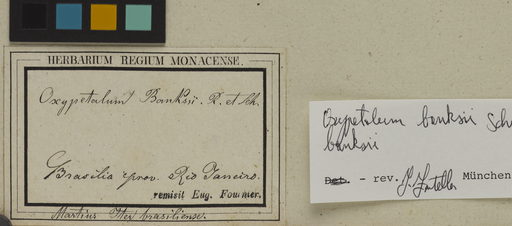 HERBARIUM REGIUM MONACENSE.
Oxypetalum Banksii. R. et Sch.
Brasilia prov. Rio Janeiro.
remisit Eug. Fournier.
Martius Iter brasiliense.
Oxypetalum banksii Sch
banksii
Det. - rev. München